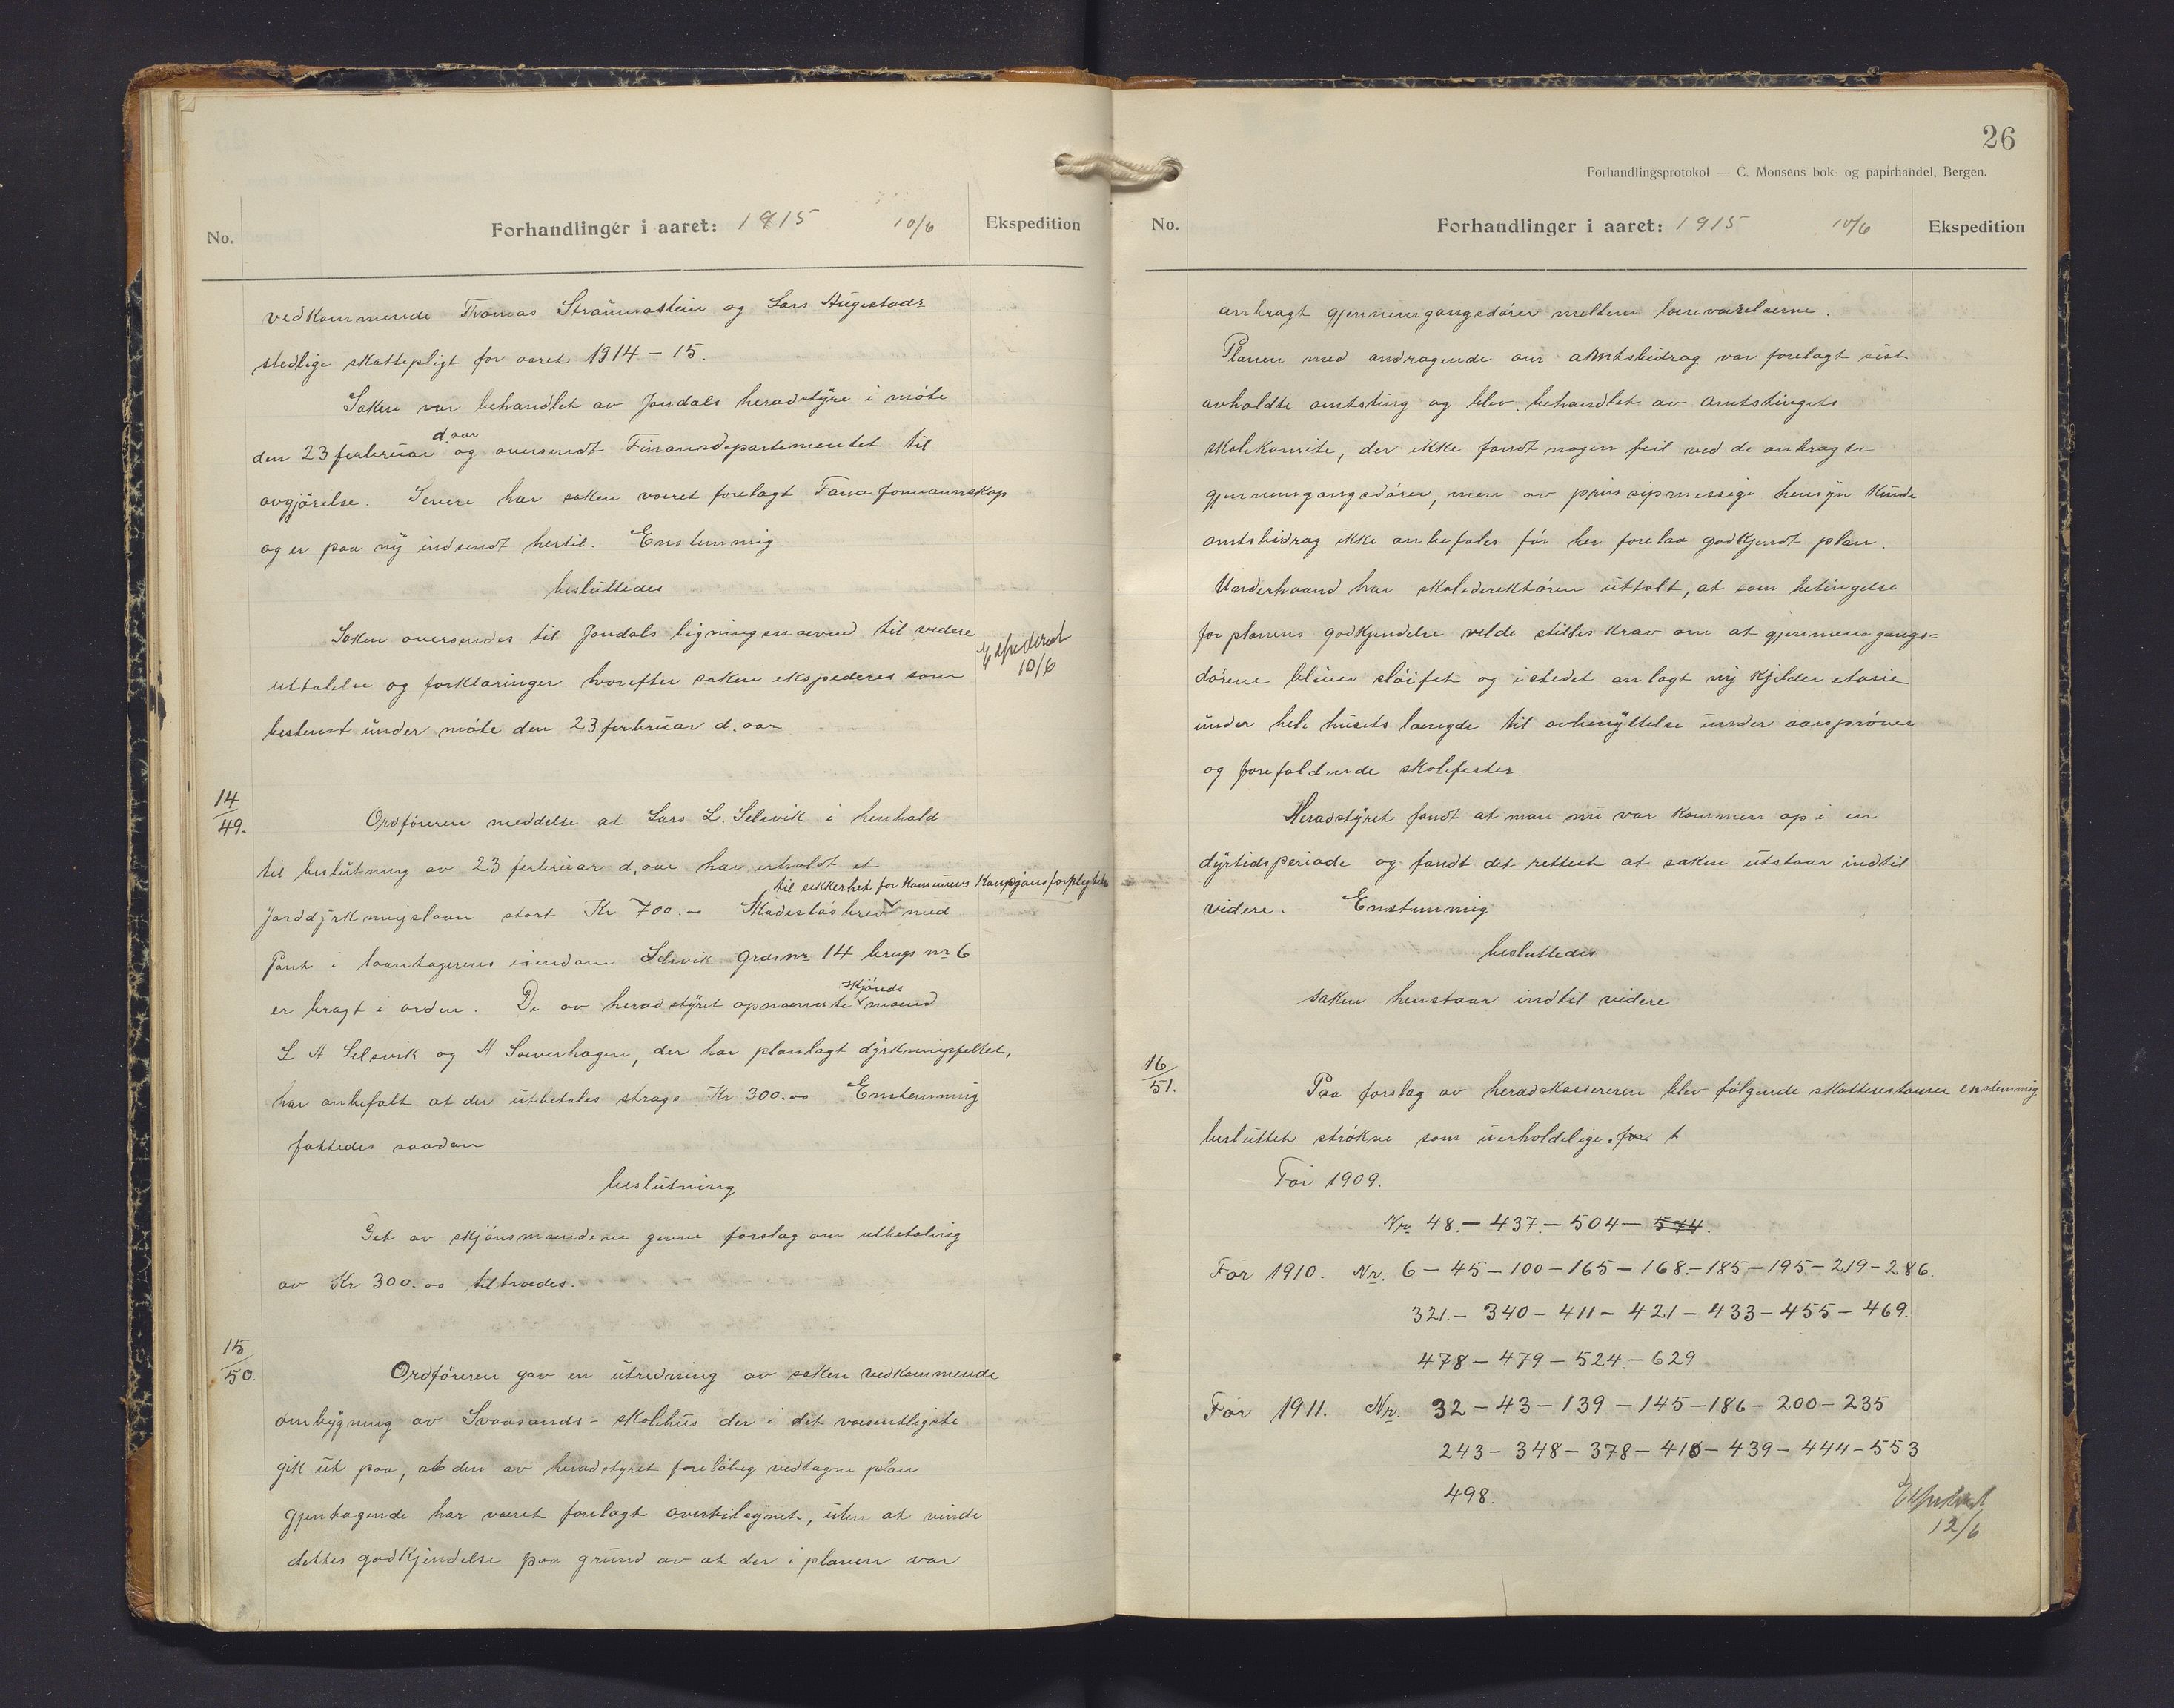 No.
Forhandlinger i aaret: 1915 10/6
Ekspedition
vedkommende Thomas Straumastein og Lars Augestads
stedlige skattepligt for aaret 1914-15.
Saken var behandlet av Jondals heradstyre i møte
den 23 februar d. aar og oversendt Finansdepartementet til
avgjørelse. Senere har saken været forelagt Fana formannskap
og er paa ny indsendt hertil. Enstemmig
besluttedes
Saken oversendes til Jondals ligningsnævnd til videre
uttalelse og forklaringer hvorefter saken ekspederes som
bestemt under møte den 23 februar d. aar
Expederet
10/6
14/49.
Ordføreren meddelte at Lars L. Selsvik i henhold
til beslutning av 23 februar d. aar har erholdt et
til sikkerhet for Kommunens Kausjonsforpligtelse
Jorddyrkningslaan stort Kr 700.00 Skadesløsbrev med
Pant i laantagerens eiendom Selsvik grdsnr 14 brugs nr 6
er bragt i orden. De av heradstyret opnævnte skjønds mænd
L A Selsvik og A Sæverhagen, der har planlagt dyrkningsfeltet,
har anbefalt at der utbetales straks Kr 300.00 Enstemmig
fattedes saadan
beslutning
Det av skjønsmændene givne forslag om utbetaling
av Kr 300.00 tiltrædes.
15/50.
Ordføreren gav en utredning av saken vedkommende
ombygning av Svaasands- skolehus der i det væsentligste
gik ut paa, at den av heradstyret foreløbig vedtagne plan
gjentagende har været forelagt overtilsynet, uten at vinde
dettes godkjendelse paa grund av at der i planen var
26
Forhandlingsprotokol — C. Monsens bok- og papirhandel, Bergen.
No.
Forhandlinger i aaret: 1915 10/6
Ekspedition
anbragt gjennemgangsdører mellem læseværelserne.
Planen med andragende om amtsbidrag var forelagt sist
avholdte amtsting og blev behandlet av Amtstingets
skolekomite, der ikke fandt nogen feil ved de anbragte
gjennemgangsdører, men av prinsipmessige hensyn kunde
amtsbidrag ikke anbefales før her forelaa godkjendt plan.
Underhaand har skoledirektøren uttalt, at som betingelse
for planens godkjendelse vilde stilles krav om at gjennemgangs=
dørene bliver sløifet og istedet anlagt ny Kjelder etasie
under hele husets længde til avbenyttelse under aarsprøver
og forefaldende skolefester.
Heradstyret fandt at man nu var kommen op i en
dyrtidsperiode og fandt det rettest at saken utstaar indtil
videre. Enstemmig
besluttedes
saken henstaar indtil videre
16/51.
Paa forslag av heradskassereren blev følgende skatterestanser enstemmig
besluttet strøkne som uerholdelige. for t
For 1909.
Nr. 48.- 437.- 504- 574.
For 1910. Nr. 6-45-100-165-168.-185-195-219-286.
321.- 340-411-421-433-455-469.
478-479-524.-629
For 1911. Nr. 32-43-139-145-186-200-235
243-348-378-416-439-444-553
498.
Expederet
12/6